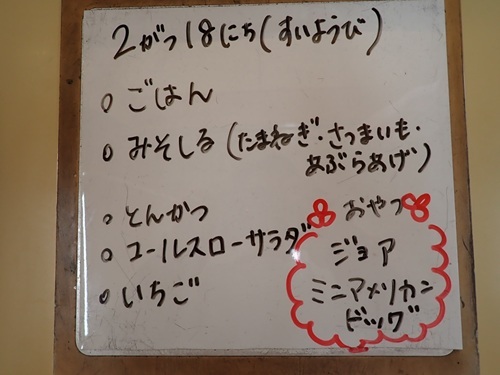 2がつ18にち(すいようび)
○ ごはん
○ みそしる(たまねぎ・さつまいも・
あぶらあげ)
○ とんかつ
○ コールスローサラダ
○ いちご
おやつ
ジョア
ミニアメリカン
ドッグ